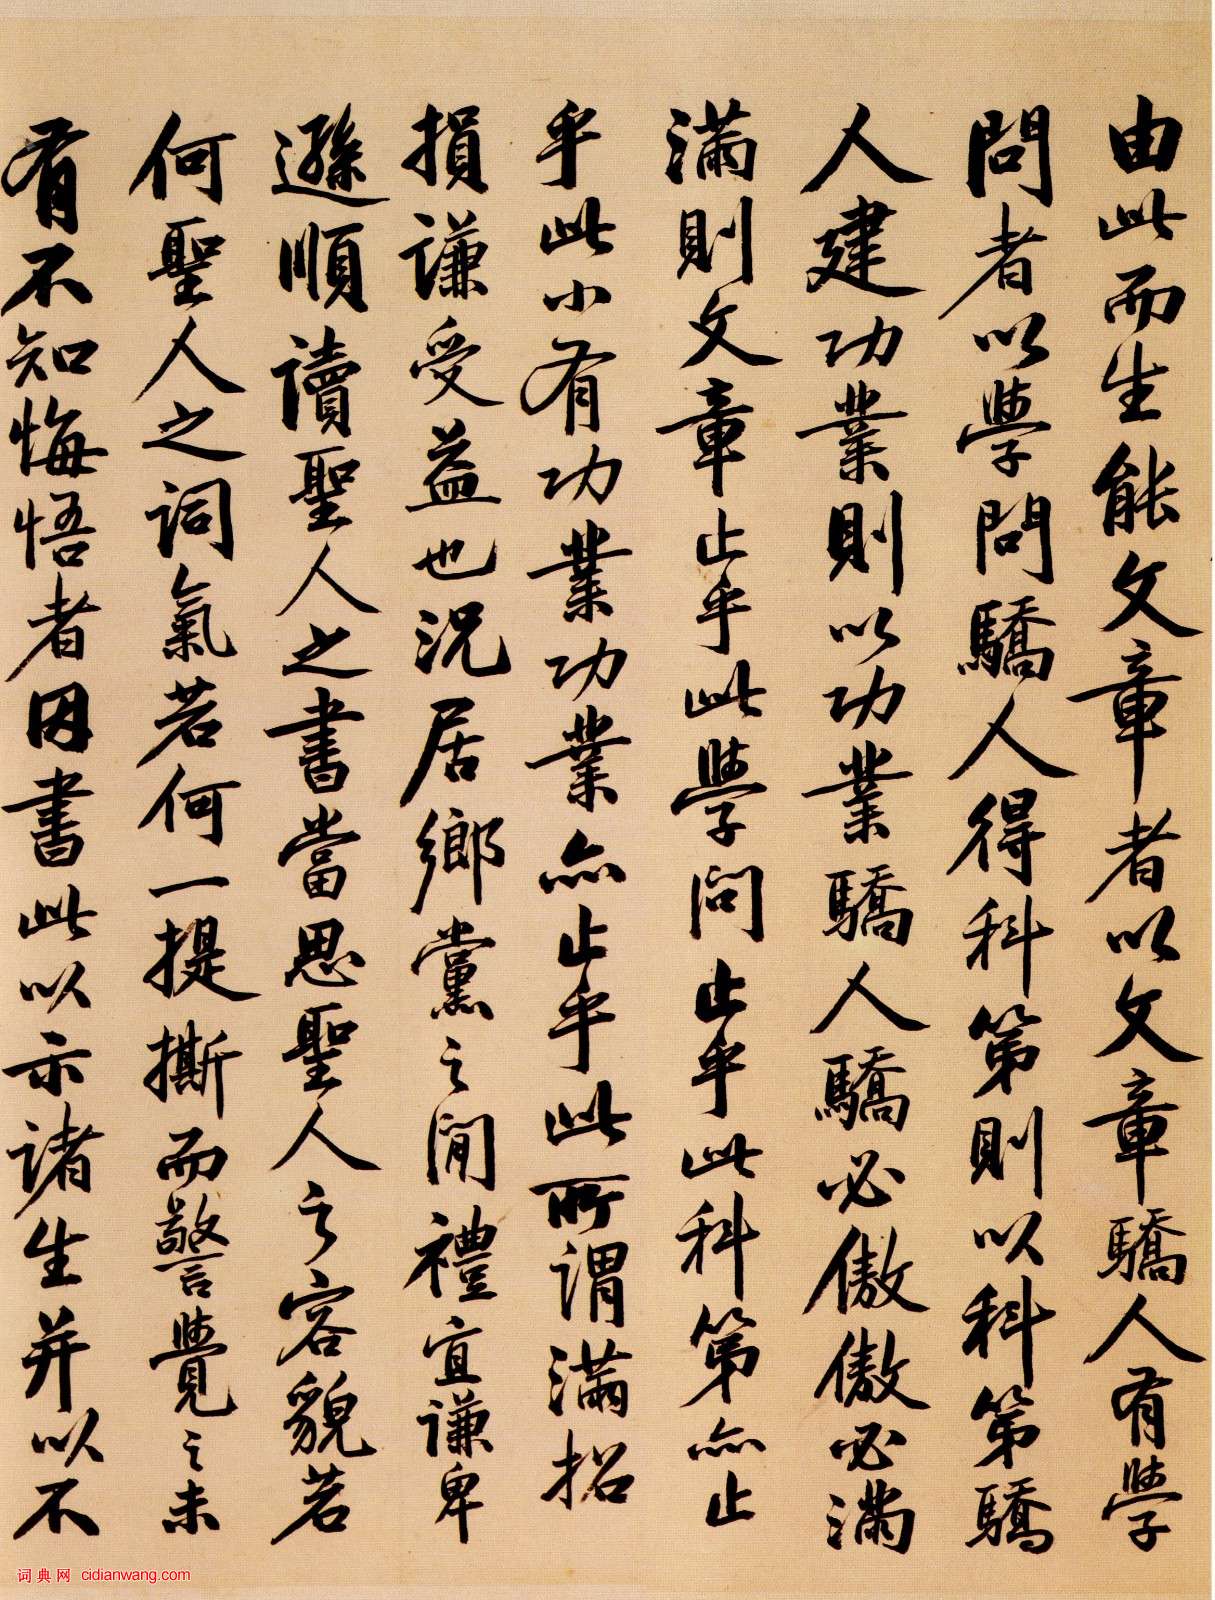 由此而生能文章者以文章驕人有學
問者以學問驕人得科第則以科第驕
人建功業則以功業驕人驕必傲傲必滿
滿則文章止乎此學問止乎此科第亦止
乎此小有功業功業亦止乎此所謂滿招
損謙受益也況居鄉黨之間禮宜謙卑
遜順讀聖人之書當思聖人之容貌若
何聖人之詞氣若何一提撕而警覺之未
有不知悔悟者因書此以示諸生并以不
词典网 cidianwang.com